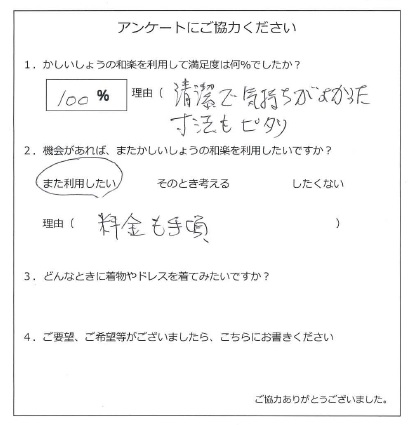 アンケートにご協力ください
1．かしいしょうの和楽を利用して満足度は何%でしたか？
100 % 理由（ 清潔で気持ちがよかった
寸法もピタリ
2．機会があれば、またかしいしょうの和楽を利用したいですか？
また利用したい そのとき考える したくない
理由（ 料金も手頃 ）
3．どんなときに着物やドレスを着てみたいですか？
4．ご要望、ご希望等がございましたら、こちらにお書きください
ご協力ありがとうございました。